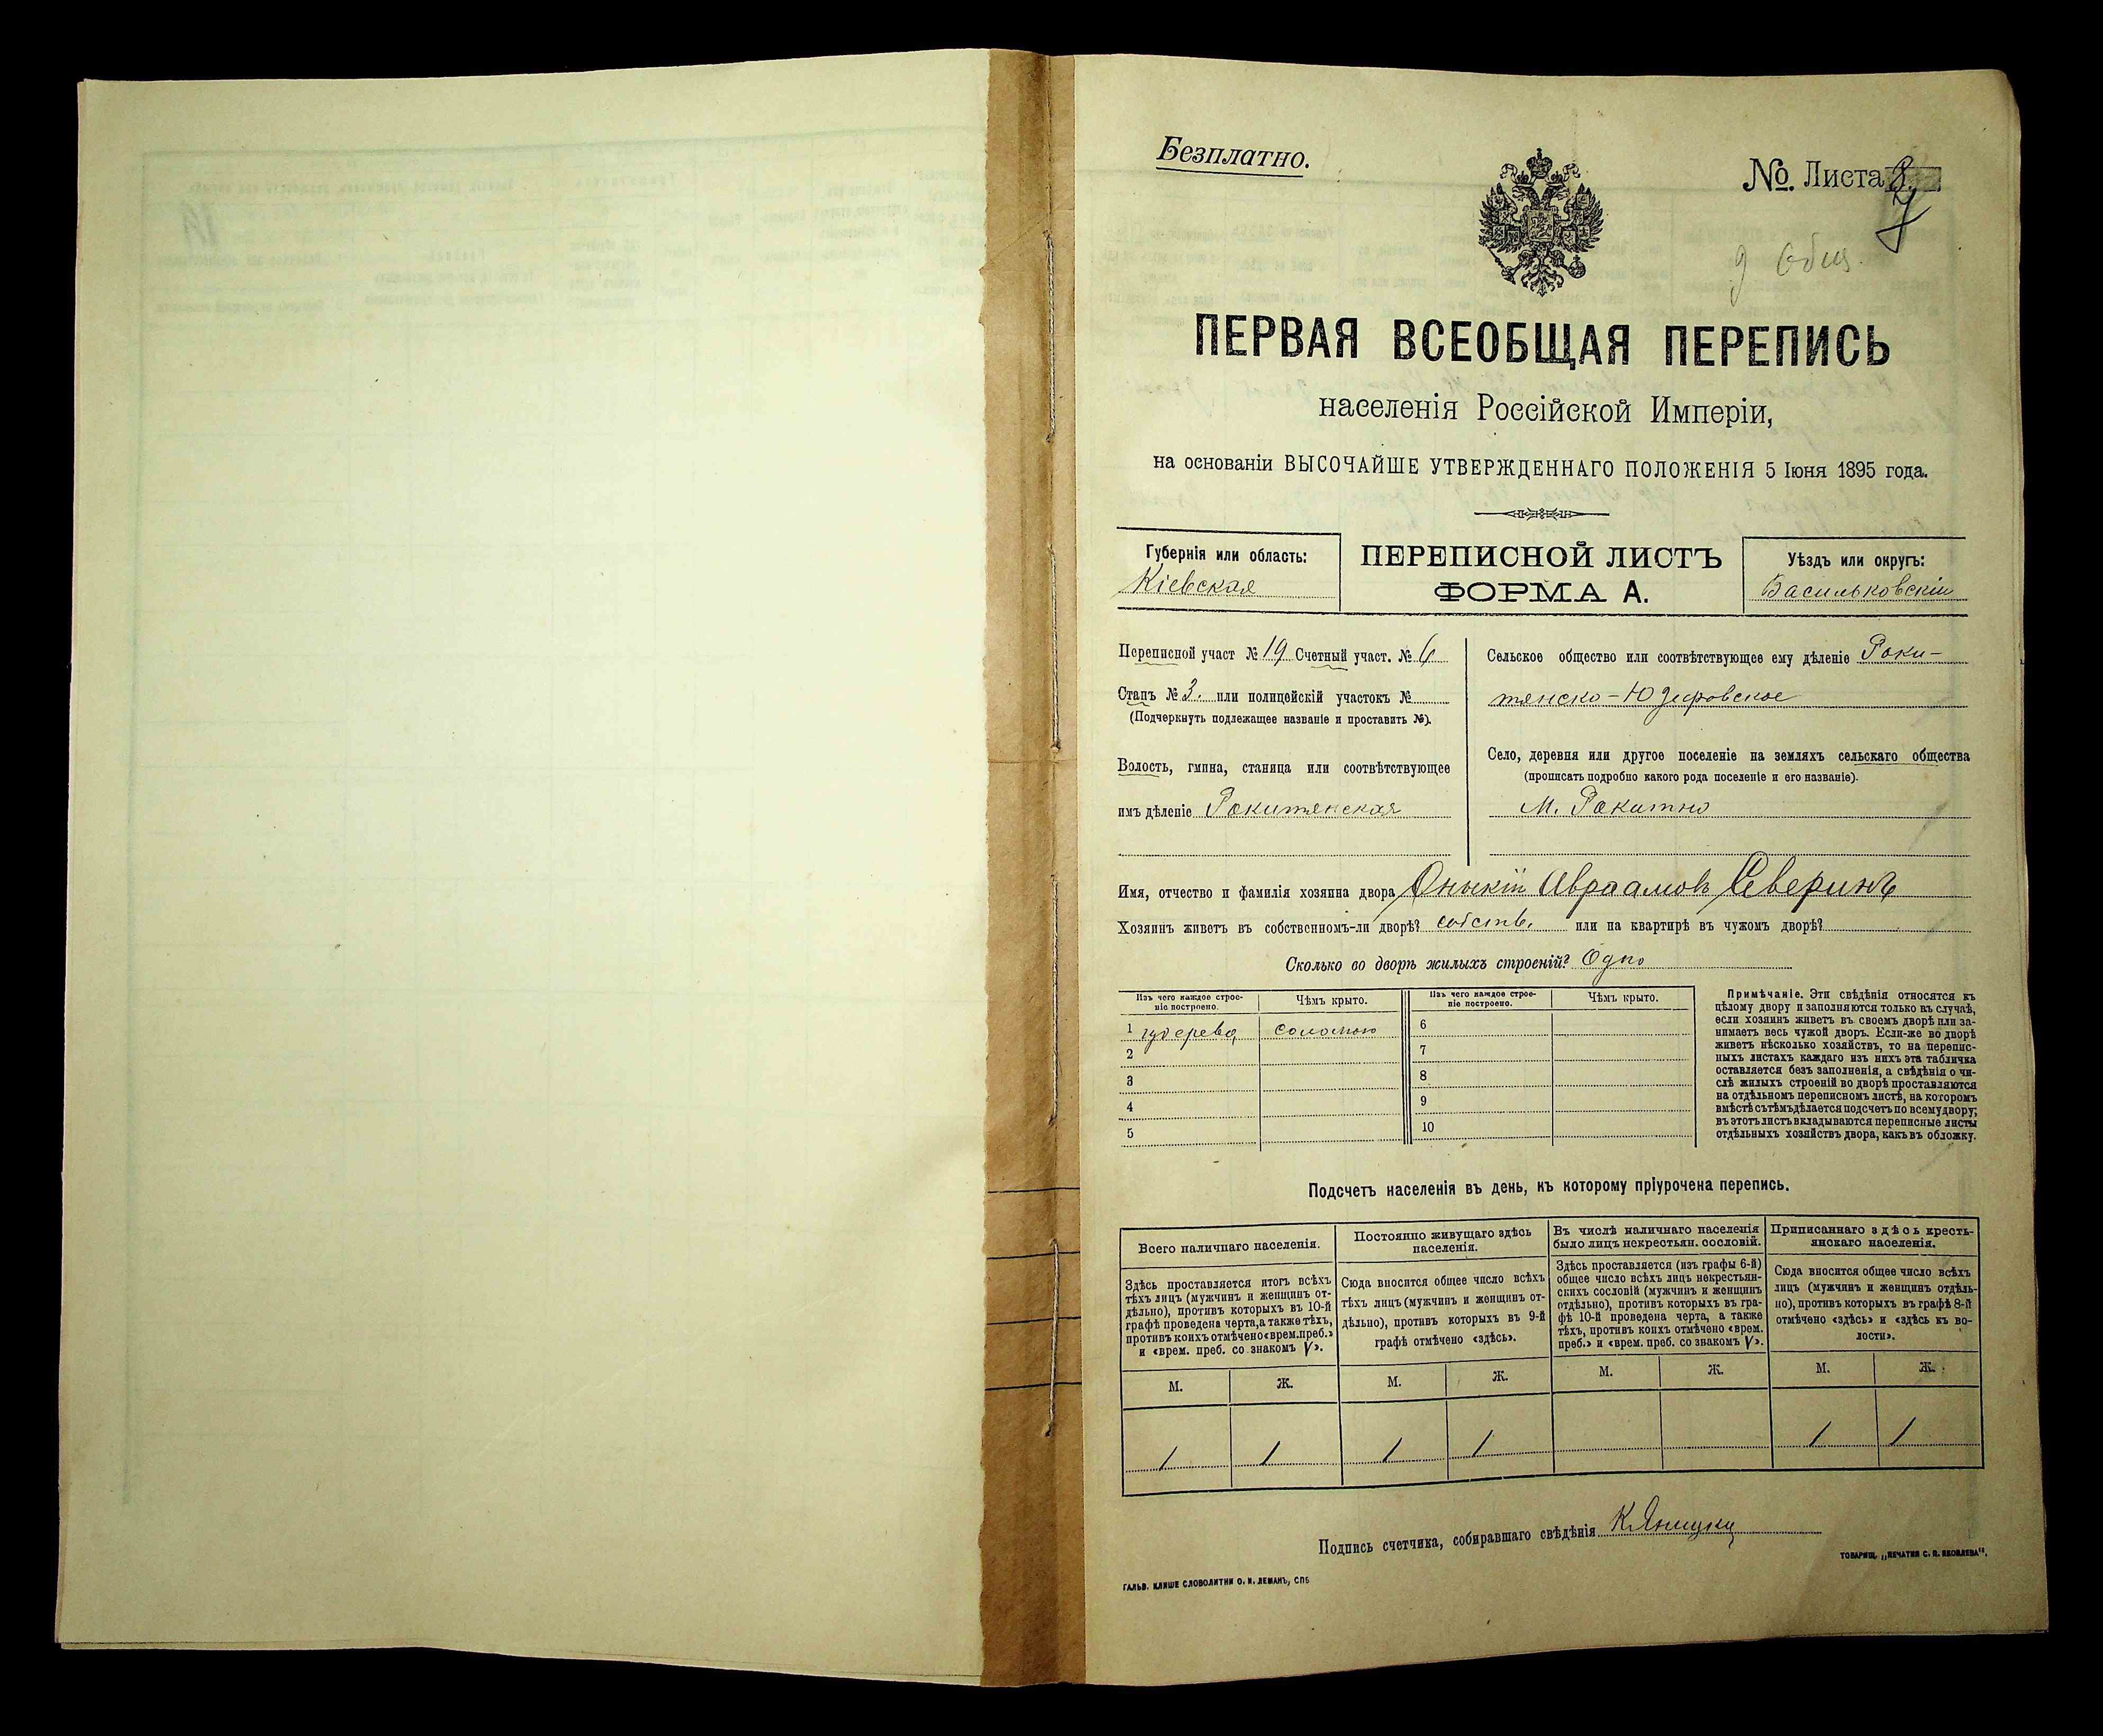 Безплатно.
№. Листа
ПЕРВАЯ ВСЕОБЩАЯ ПЕРЕПИСЬ
населенія Россійской Имперіи,
на основаніи ВЫСОЧАЙШЕ УТВЕРЖДЕННАГО ПОЛОЖЕНІЯ 5 Іюня 1895 года.
Губернія или область:
Кіевская
ПЕРЕПИСНОЙ ЛИСТЪ
ФОРМА А.
Уѣздъ или округъ:
Васильковскій
Переписной участ № 19 Счетный участ. № 6
Станъ № 3. или полицейскій участокъ №
(Подчеркнуть подлежащее названіе и проставить №).
Волость, гмина, станица или соотвѣтствующее
имъ дѣленіе Рокитянская
Сельское общество или соотвѣтствующее ему дѣленіе Роки-
тянско-Юзефовское
Село, деревня или другое поселеніе на земляхъ сельскаго общества
(прописать подробно какого рода поселеніе и его названіе).
М. Рокитно
Имя, отчество и фамилія хозяина двора Оныскій Авраамовъ Северинъ
Хозяинъ живетъ въ собственномъ-ли дворѣ? собств. или на квартирѣ въ чужомъ дворѣ?
Сколько во дворѣ жилыхъ строеній? Одно
Изъ чего каждое строе-
ніе построено.
Чѣмъ крыто.
Изъ чего каждое строе-
ніе построено.
Чѣмъ крыто.
1 изъ дерева, соломою 6
2 7
3 8
4 9
5 10
Примѣчаніе. Эти свѣдѣнія относятся къ
цѣлому двору и заполняются только въ случаѣ,
если хозяинъ живетъ въ своемъ дворѣ или за-
нимаетъ весь чужой дворъ. Если-же во дворѣ
живетъ нѣсколько хозяйствъ, то на перепис-
ныхъ листахъ каждаго изъ нихъ эта табличка
оставляется безъ заполненія, а свѣдѣнія о чи-
слѣ жилыхъ строеній во дворѣ проставляются
на отдѣльномъ переписномъ листѣ, на которомъ
вмѣстѣ съ тѣмъ дѣлается подсчетъ по всему двору;
въ этотъ листъ вкладываются переписные листы
отдѣльныхъ хозяйствъ двора, какъ въ обложку.
Подсчетъ населенія въ день, къ которому пріурочена перепись.
Всего наличнаго населенія.
Здѣсь проставляется итогъ всѣхъ
тѣхъ лицъ (мужчинъ и женщинъ от-
дѣльно), противъ которыхъ въ 10-й
графѣ проведена черта, а также тѣхъ,
противъ коихъ отмѣчено «врем. преб.»
и «врем. преб. со знакомъ V».
Постоянно живущаго здѣсь
населенія.
Сюда вносится общее число всѣхъ
тѣхъ лицъ (мужчинъ и женщинъ от-
дѣльно), противъ которыхъ въ 9-й
графѣ отмѣчено «здѣсь».
Въ числѣ наличнаго населенія
было лицъ некрестьян. сословій.
Здѣсь проставляется (изъ графы 6-й)
общее число всѣхъ лицъ некрестьян-
скихъ сословій (мужчинъ и женщинъ
отдѣльно), противъ которыхъ въ гра-
фѣ 10-й проведена черта, а также
тѣхъ, противъ коихъ отмѣчено «врем.
преб.» и «врем. преб. со знакомъ V».
Приписаннаго здѣсь кресть-
янскаго населенія.
Сюда вносится общее число всѣхъ
лицъ (мужчинъ и женщинъ отдѣль-
но), противъ которыхъ въ графѣ 8-й
отмѣчено «здѣсь» и «здѣсь къ во-
лости».
М. Ж. М. Ж. М. Ж. М. Ж.
1 1 1 1 1 1
Подпись счетчика, собиравшаго свѣдѣнія
ГАЛЬВ. КЛИШЕ СЛОВОЛИТНИ О. И. ЛЕМАНЪ, СПБ
ТОВАРИЩ. „ПЕЧАТНЯ С. П. ЯКОВЛЕВА".